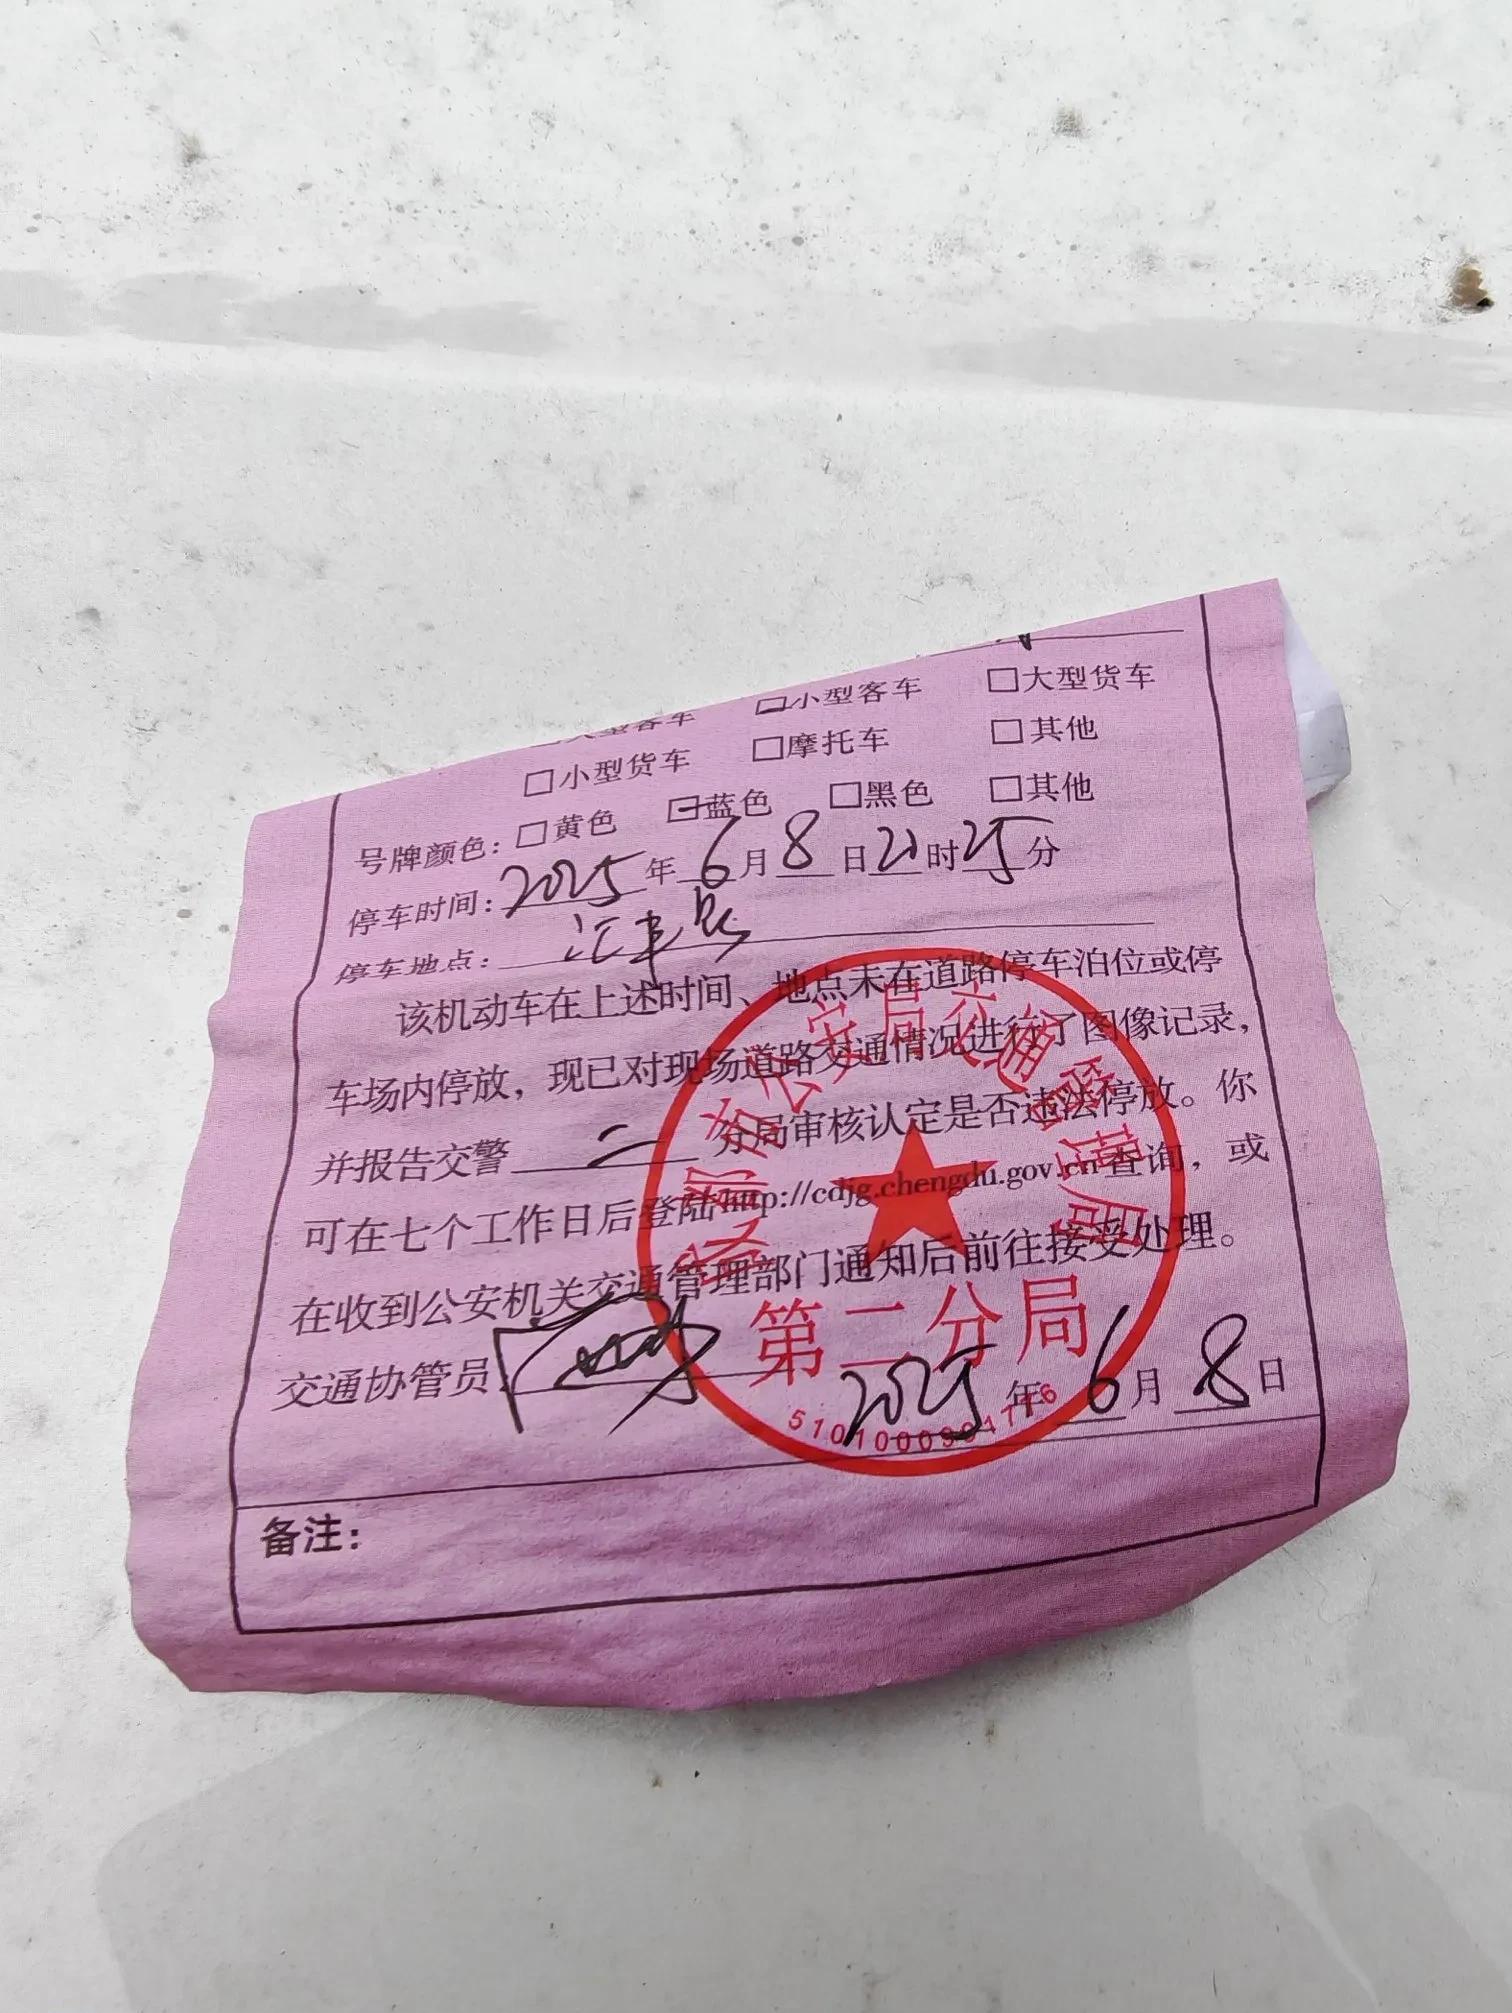 小型客车 □大型货车
□小型货车 □摩托车 □其他
号牌颜色：□黄色 ☑蓝色 □黑色 □其他
停车时间：2025年6月8日21时25分
停车地点：
该机动车在上述时间、地点未在道路停车泊位或停
车场内停放，现已对现场道路交通情况进行了图像记录，
并报告交警二分局审核认定是否违法停放。你
可在七个工作日后登陆http://cdjg.chengdu.gov.cn查询，或
在收到公安机关交通管理部门通知后前往接受处理。
交通协管员
2025年6月8日
成都市公安局交通管理局
第二分局
备注：